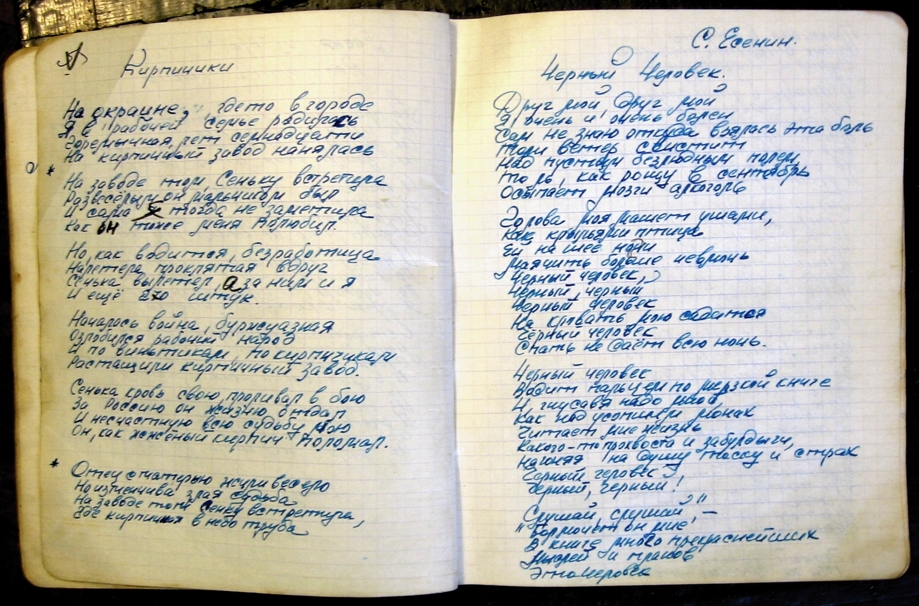 Кирпичики
На окраине, где то в городе
Я в рабочей семье родилась
Горемычная, лет семнадцати
На кирпичный завод нанялась
На заводе том, Сеньку встретила
Развесёлым он мальчишкой был
И сама я тогда не заметила
Как он тоже меня полюбил.
Но, как водится, безработица
Налетела проклятая вдруг
Сенька вылетел, а за ним и я
И ещё штук.
Началась война, буржуазная
Озлобился рабочий народ
И по винтикам, по кирпичикам
Растащили кирпичный завод.
Сенька кровь свою, проливал в бою
За Россию он жизнью отдал
И несчастную всю судьбу мою
Он, как жжёный кирпич поломал.
Отец с матерью жили весело
Но изменчива злая судьба
На заводе том Сеньку встретила,
Где кирпичная в небо труба
С. Есенин.
Черный Человек.
Друг мой Друг мой
Я очень и очень болен
Сам не знаю откуда взялась эта боль
То ли ветер свистит
Над пустым безлюдным полем
То ль, как рощу в сентябрь
Осыпает мозги алкоголь
Голова моя машет ушами,
Как крыльями птица
Ей на шее ноги
Маячить больше невмочь
Черный человек,
Черный, черный
Черный человек
На кровать мою садится
Чёрный человек
Спать не даёт всю ночь.
Черный человек
Водит пальцем по мерзкой книге
И, гнусавя надо мной
Как над усопшим монах
Читает мне жизнь
Какого-то прохвоста и забулдыги,
Нагоняя на душу тоску и страх
Черный человек
Черный, черный!
Слушай, слушай, –
Бормочет он мне,
В книге много прекраснейших
Мыслей и планов
Это человек